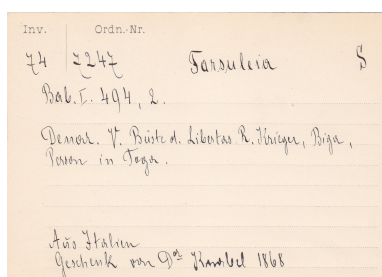 Inv. Ordn.-Nr.
74 7247 Farsuleia S
Bab. I. 494, 2.
Denar. V. Büste d. Libertas R. Krieger, Biga,
Person in Toga.
Aus Italien
Geschenk von Dr 1868